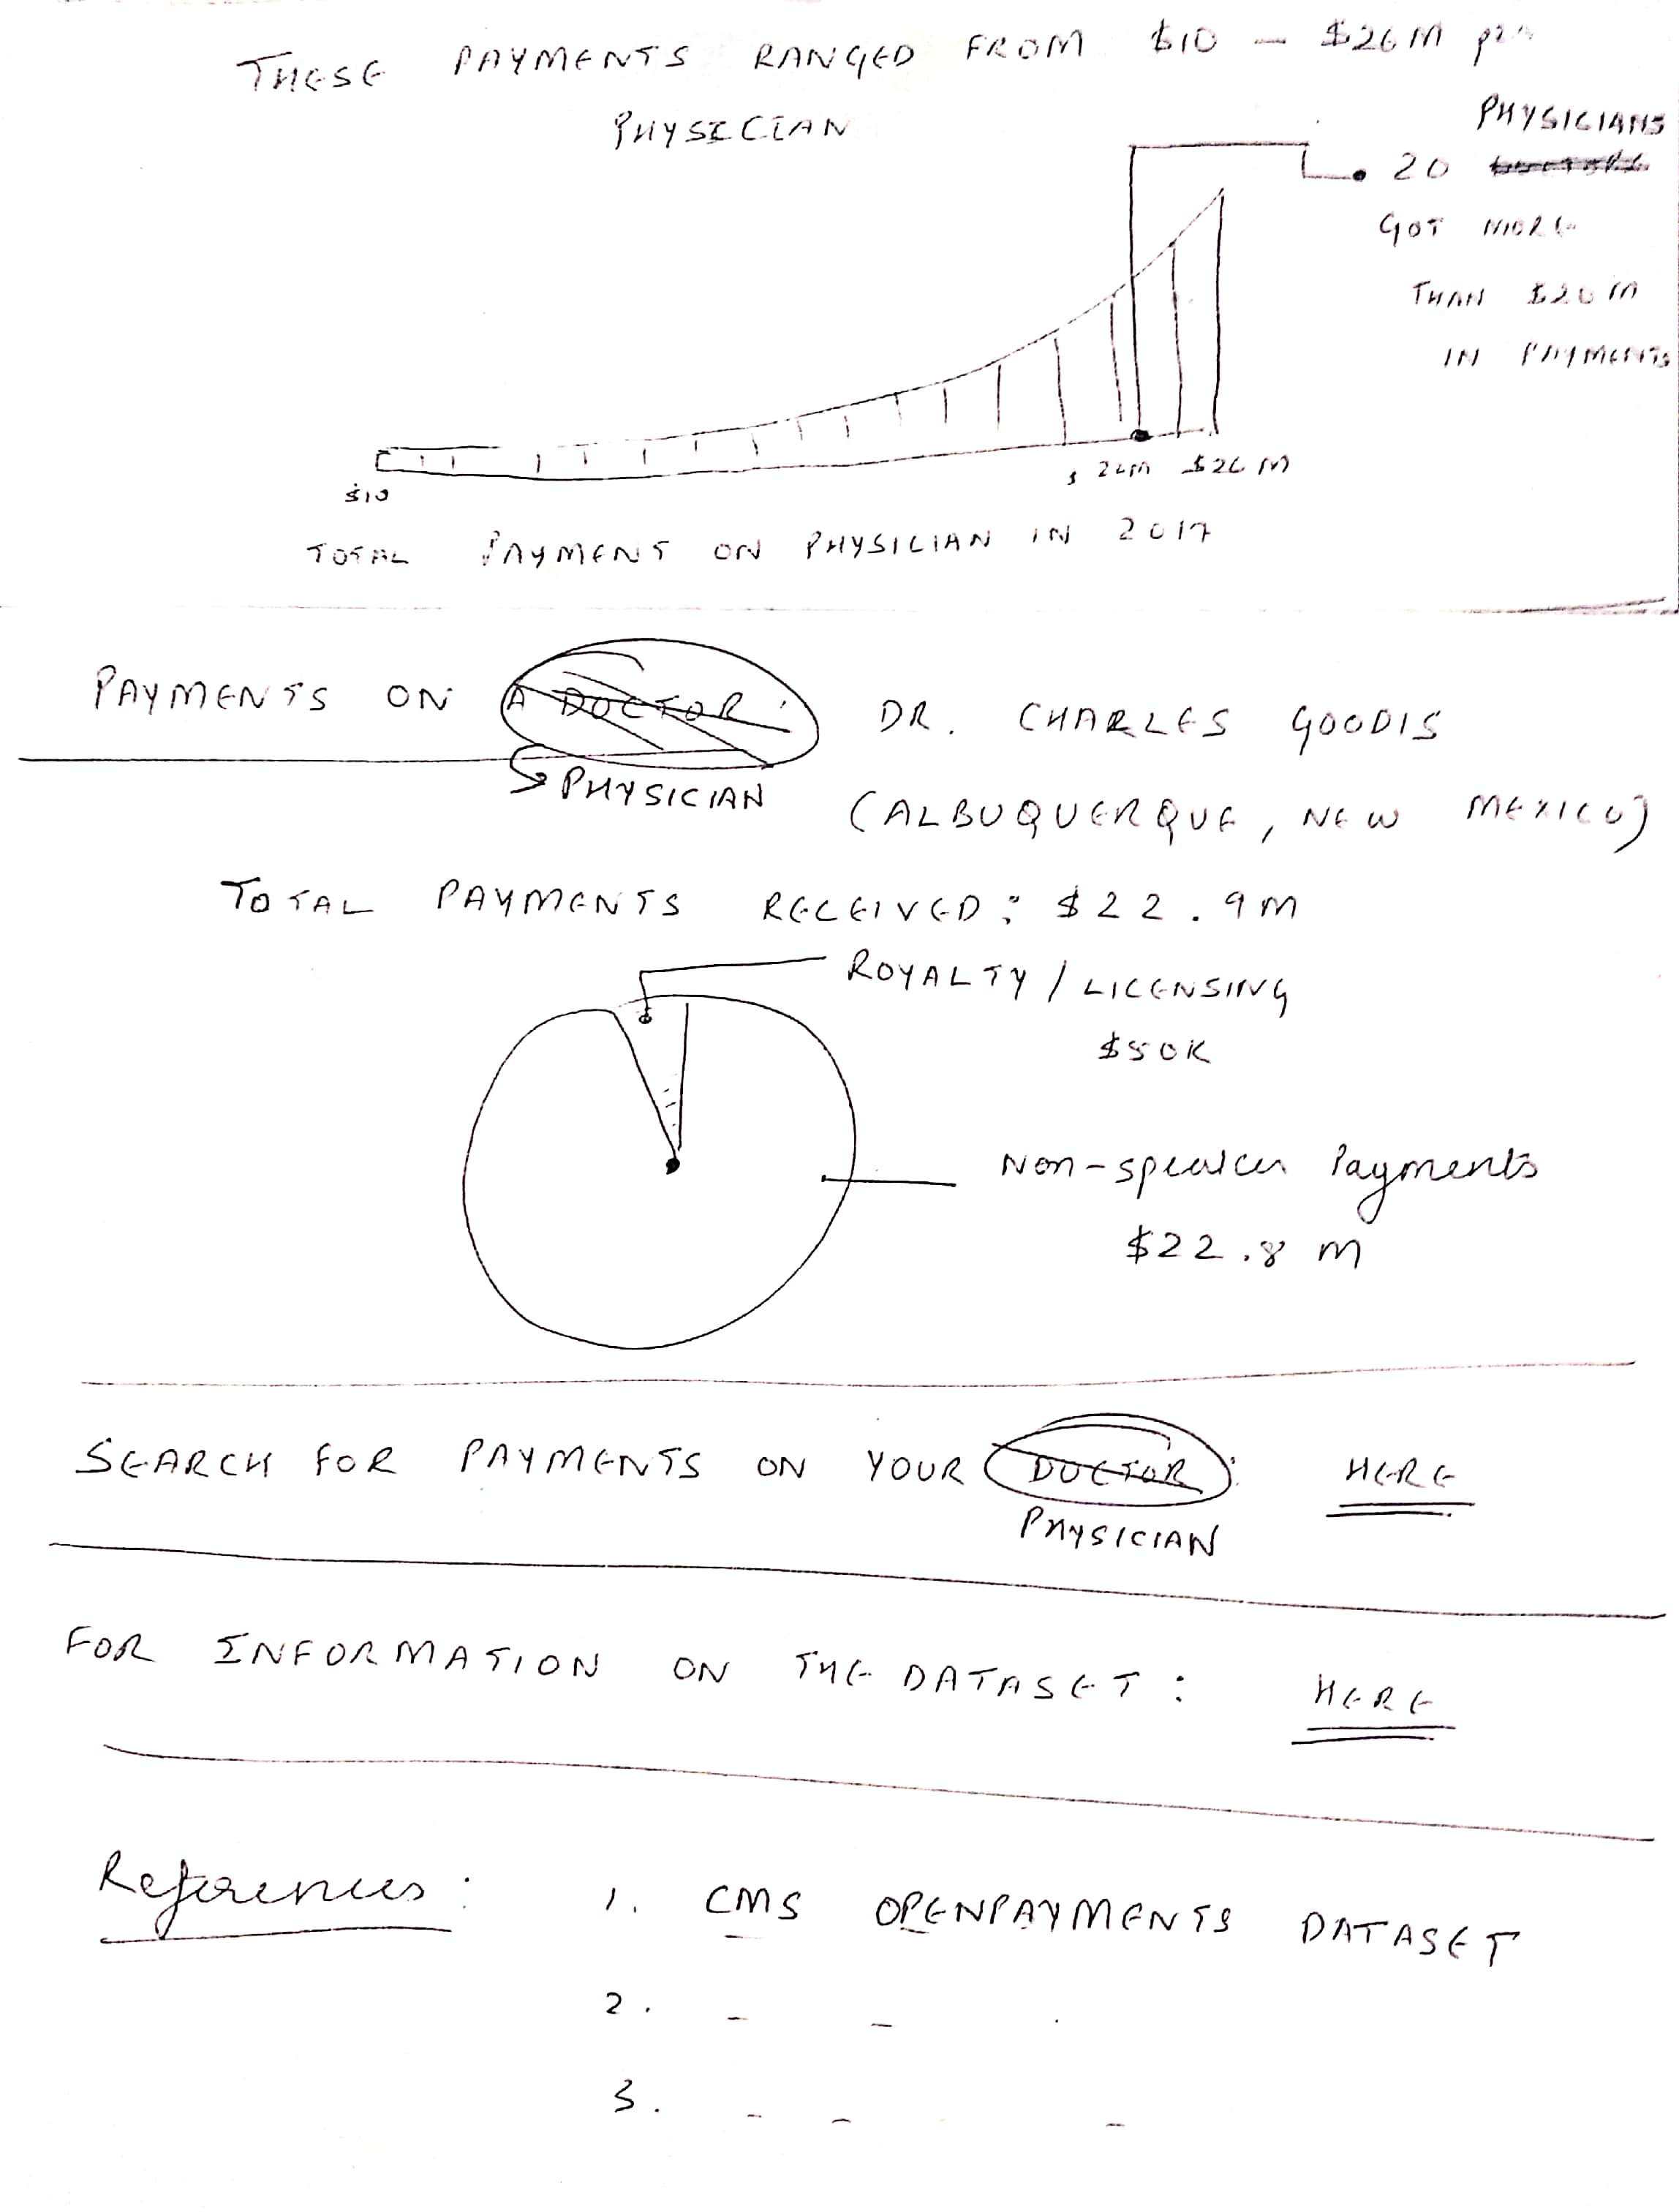 THESE PAYMENTS RANGED FROM $10 – $26M per
PHYSICIAN
PHYSICIANS
20
GOT MORE
THAN $20M
IN PAYMENTS
$10
$26M
TOTAL PAYMENT ON PHYSICIAN IN 2017
PAYMENTS ON A DOCTOR: DR. CHARLES GOODIS
PHYSICIAN
(ALBUQUERQUE, NEW MEXICO)
TOTAL PAYMENTS RECEIVED: $22.9M
ROYALTY / LICENSING
$50K
Non-speaker Payments
$22.8 M
SEARCH FOR PAYMENTS ON YOUR DOCTOR: HERE
PHYSICIAN
FOR INFORMATION ON THE DATASET: HERE
References:
1. CMS OPENPAYMENTS DATASET
2. - -
3. - - -